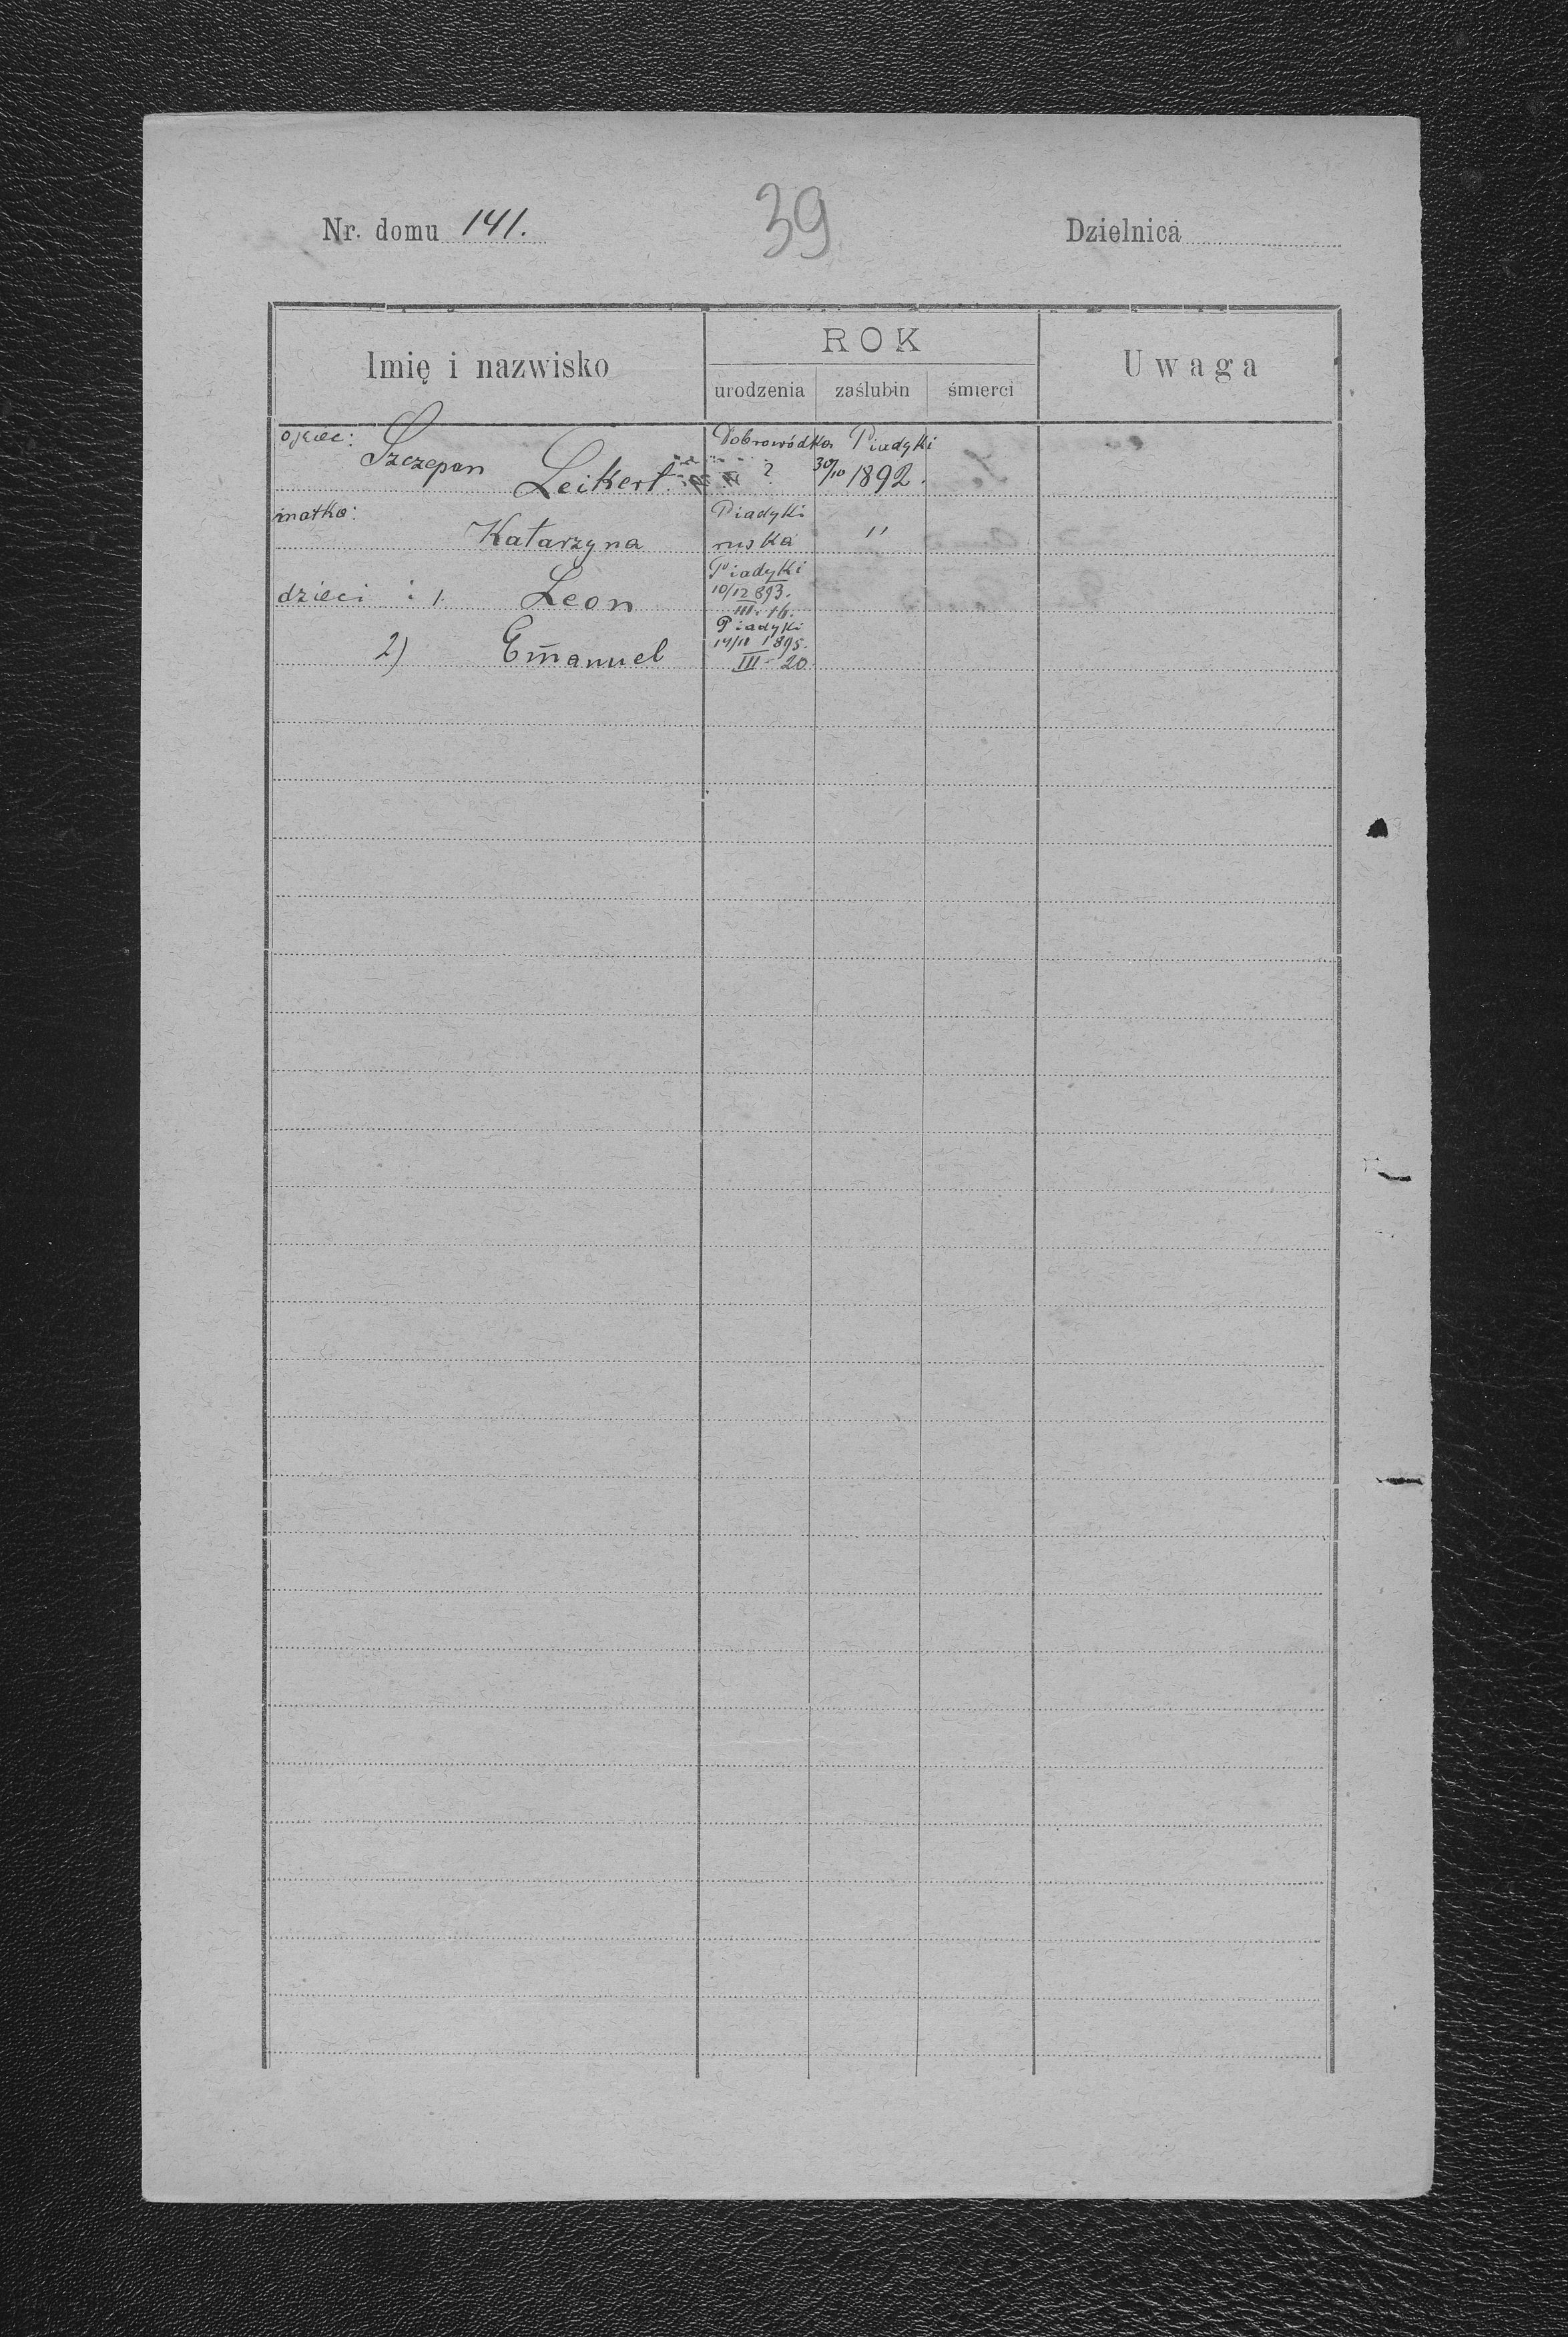 39
Nr. domu 141. Dzielnica
Imię i nazwisko
ROK
urodzenia zaślubin śmierci
Uwaga
ojciec: Dobrowódka Piadyki
Szczepan Leikert ? 30/10 1892.
matka: Piadyki
Katarzyna ruska "
Piadyki
dzieci : 1. Leon 10/12 893.
III. 16.
Piadyki
2) Emanuel 1895.
III - 20.